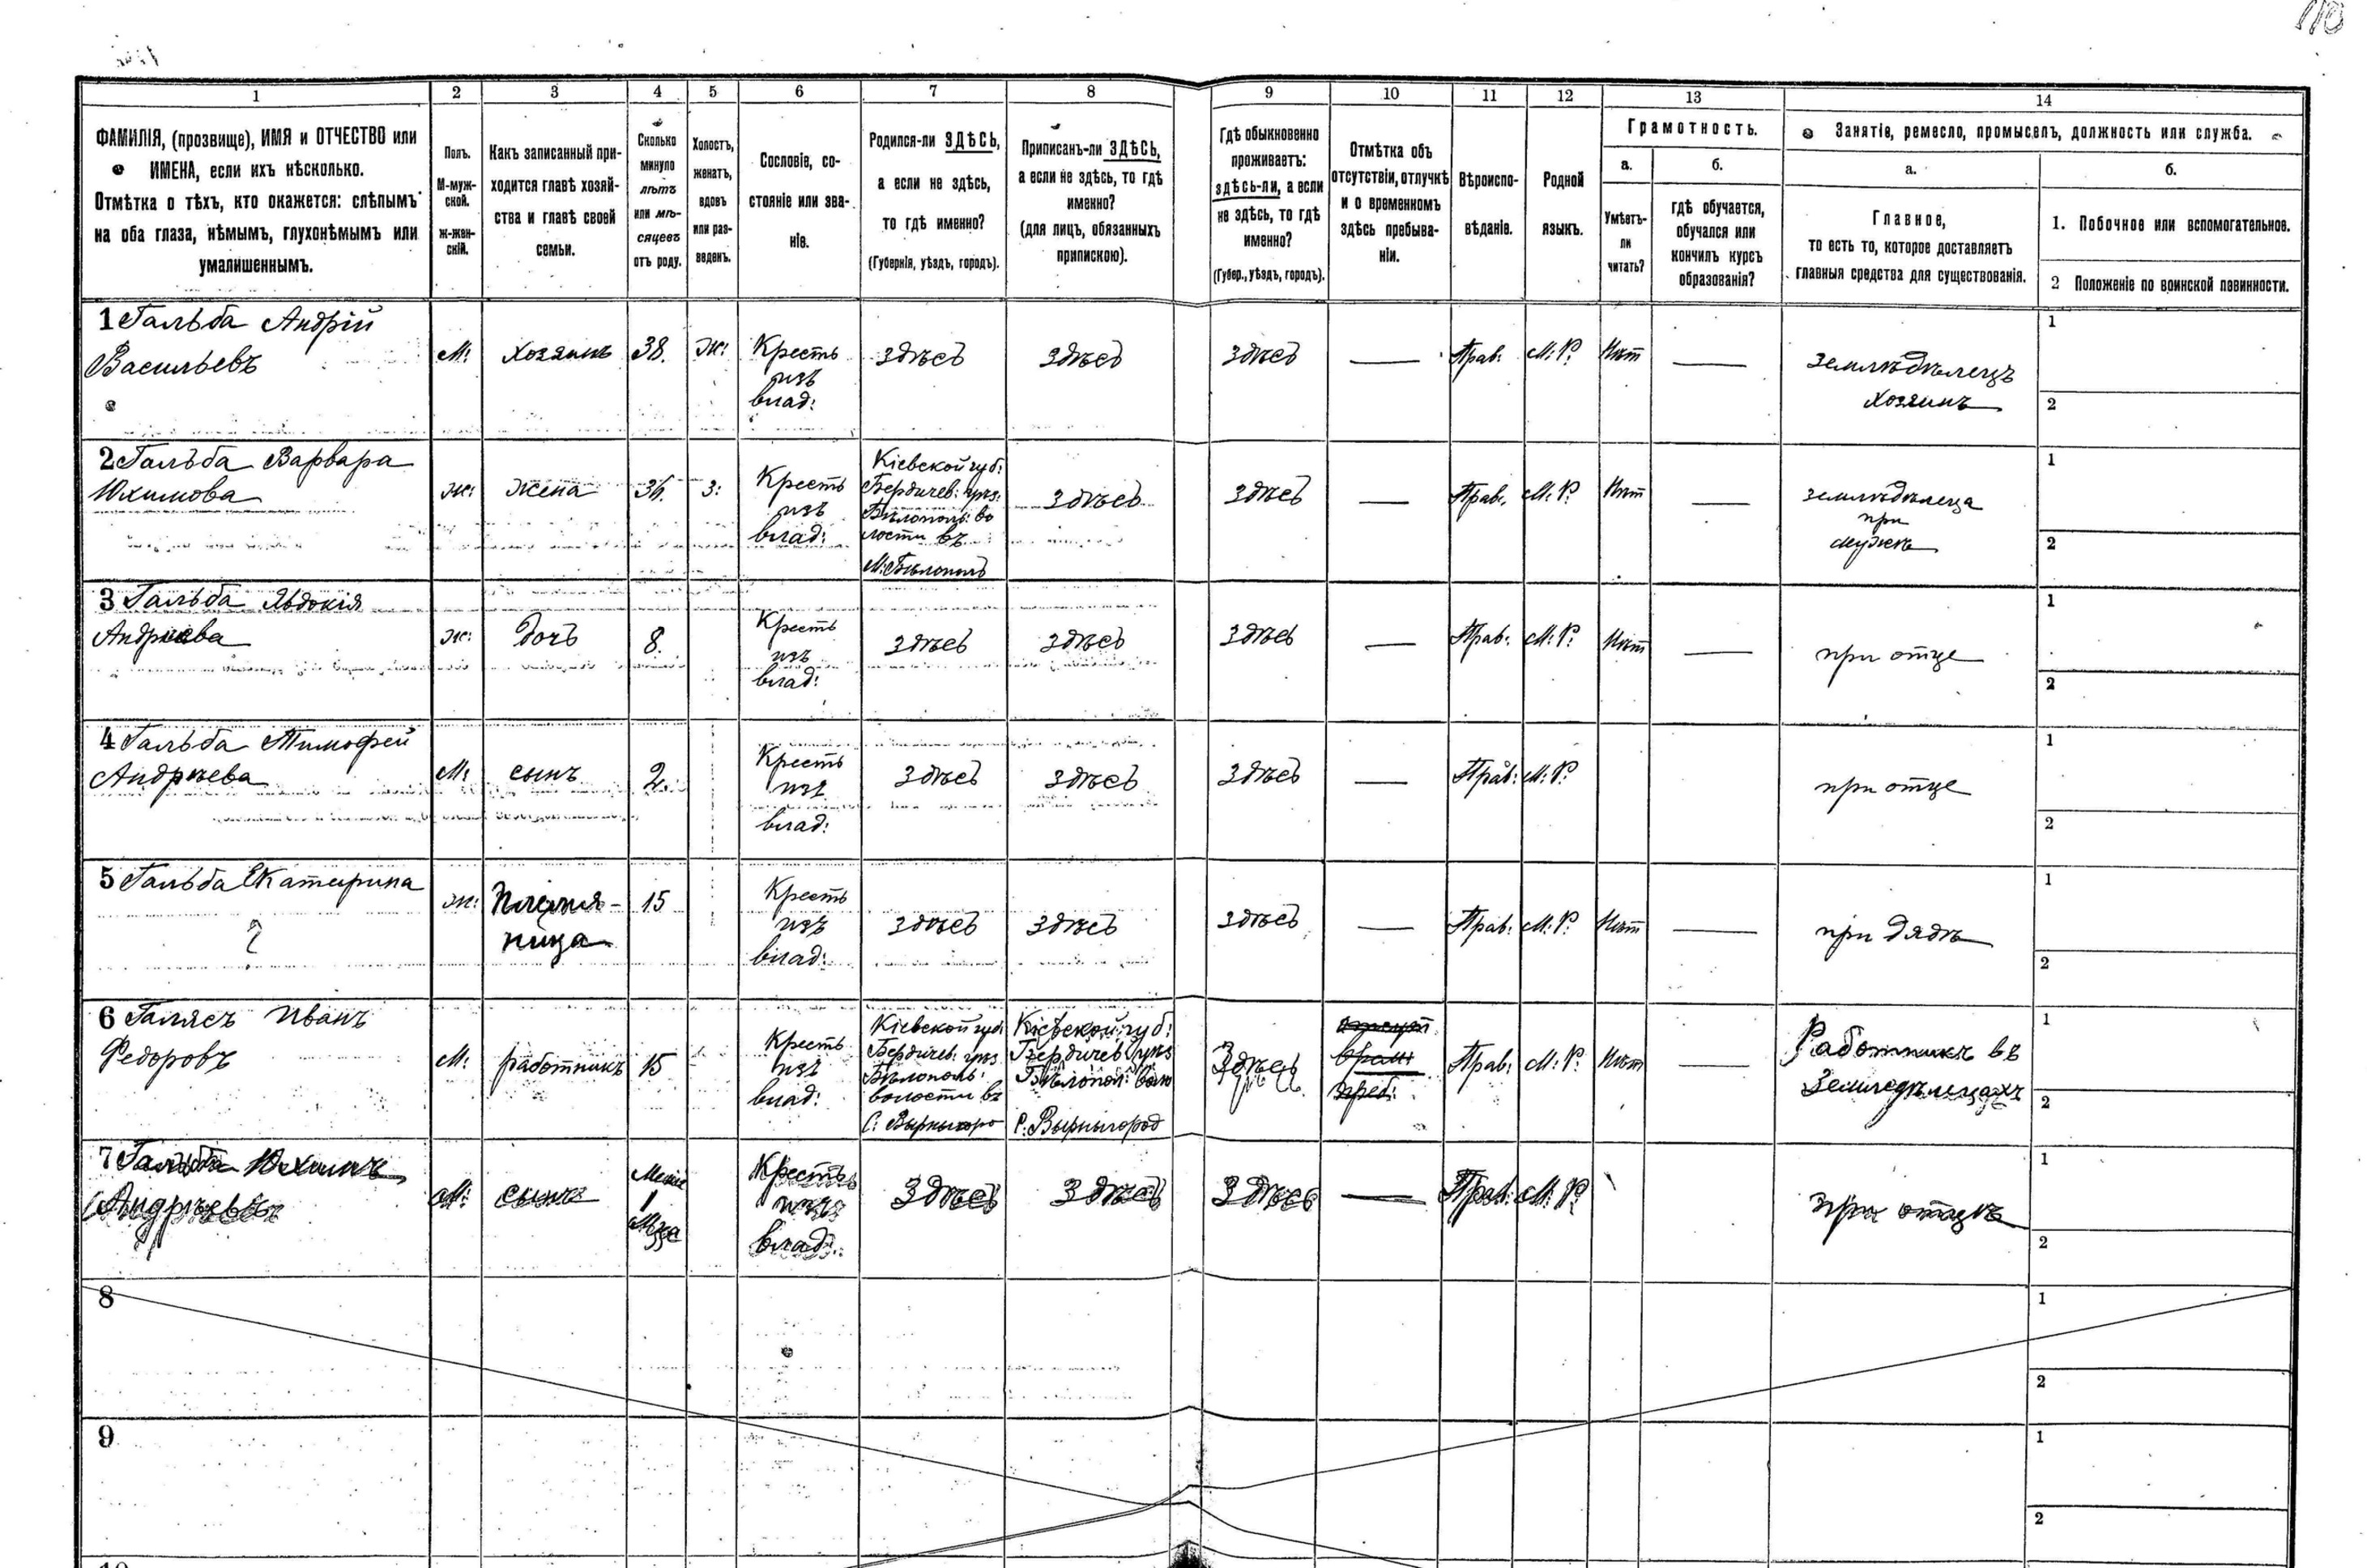 110
1
2
3
4
5
6
7
8
9
10
11
12
13
14
ФАМИЛІЯ, (прозвище), ИМЯ и ОТЧЕСТВО или
ИМЕНА, если ихъ нѣсколько.
Отмѣтка о тѣхъ, кто окажется: слѣпымъ
на оба глаза, нѣмымъ, глухонѣмымъ или
умалишеннымъ.
Полъ.
М-муж-
ской.
Ж-жен-
скій.
Какъ записанный при-
ходится главѣ хозяй-
ства и главѣ своей
семьи.
Сколько
минуло
лѣтъ
или мѣ-
сяцевъ
отъ роду.
Холостъ,
женатъ,
вдовъ
или раз-
веденъ.
Сословіе, со-
стояніе или зва-
ніе.
Родился-ли ЗДѢСЬ,
а если не здѣсь,
то гдѣ именно?
(Губернія, уѣздъ, городъ).
Приписанъ-ли ЗДѢСЬ,
а если не здѣсь, то гдѣ
именно?
(для лицъ, обязанныхъ
припискою).
Гдѣ обыкновенно
проживаетъ:
здѣсь-ли, а если
не здѣсь, то гдѣ
именно?
(Губер., уѣздъ, городъ).
Отмѣтка объ
отсутствіи, отлучкѣ
и о временномъ
здѣсь пребыва-
ніи.
Вѣроиспо-
вѣданіе.
Родной
языкъ.
Грамотность.
а.
Умѣетъ-
ли
читать?
б.
гдѣ обучается,
обучался или
кончилъ курсъ
образованія?
Занятіе, ремесло, промыселъ, должность или служба.
а.
Главное,
то есть то, которое доставляетъ
главныя средства для существованія.
б.
1. Побочное или вспомогательное.
2 Положеніе по воинской повинности.
1 Гальба Андрій
Васильевъ
М:
Хозяинъ
38.
Ж:
Кресть
изъ
влад:
здѣсь
здѣсь
здѣсь
—
Прав:
М: Р:
Нѣт
—
землѣдѣлецъ
хозяинъ
1
2
2 Гальба Варвара
Юхимова
ж:
жена
36.
з:
Кресть
изъ
влад:
Кіевской губ:
Бердичев: уѣз:
Бѣлополь: во
лости въ
М: Бѣлополь
здѣсь
здѣсь
—
Прав.
М: Р:
Нѣт
—
землѣдѣлеца
при
мужѣ
1
2
3 Гальба Явдокія
Андрѣева
ж:
дочь
8.
Кресть
изъ
влад:
здѣсь
здѣсь
здѣсь
—
Прав:
М: Р:
Нѣт
—
при отце
1
2
4 Гальба Тимофей
Андрѣева
М:
сынъ
2.
Кресть
изъ
влад:
здѣсь
здѣсь
здѣсь
—
Прав:
М: Р:
при отце
1
2
5 Гальба Екатирина
?
ж:
Племя-
ница
15
Кресть
изъ
влад:
здѣсь
здѣсь
здѣсь
—
Прав:
М: Р:
Нѣт
—
при дядѣ
1
2
6 Галясъ Иванъ
Федоровъ
М:
работникъ
15
Кресть
изъ
влад:
Кіевской губ:
Бердичев: уѣз:
Бѣлополь:
волости въ
С: Вырныгоро
Кіевской: губ:
Бердичев уѣз
Бѣлопол: воло
С: Вырныгород
Здѣсь
Прав:
М: Р:
Нѣт
—
Работникъ въ
Земледѣлецахъ
1
2
7 Гальба Юхимъ
Андрѣевъ
М:
сынъ
Менѣе
1
М-ца
Кресть
изъ
влад:
здѣсь
здѣсь
здѣсь
—
Прав:
М: Р:
при отцѣ
1
2
8
1
2
9
1
2